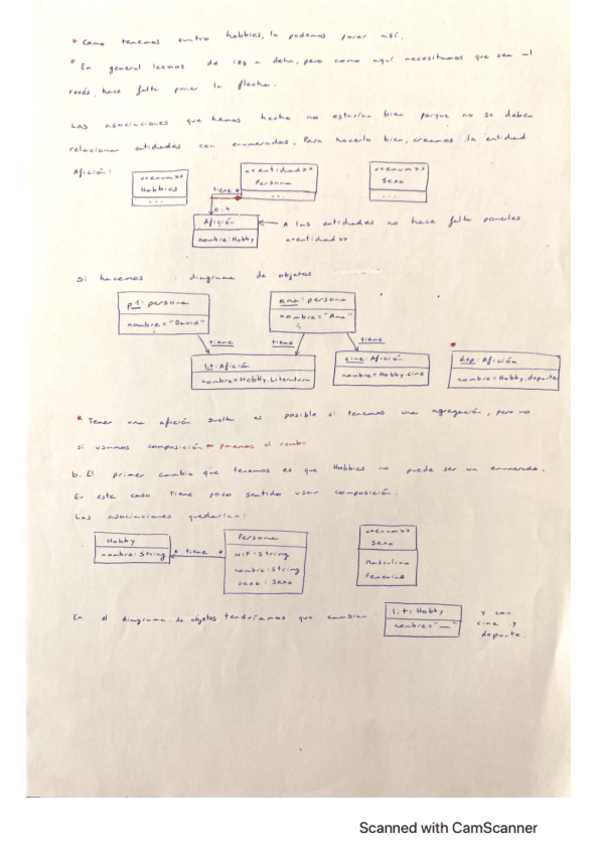 * Como tenemos cuatro hobbies, lo podemos poner así.
* En general leemos de izq a dcha, pero como aquí necesitamos que sea al
revés, hace falta poner la flecha.
Las asociaciones que hemos hecho no estarían bien porque no se deben
relacionar entidades con enumerados. Para hacerlo bien, creamos la entidad
Afición:
<<enum>>
Hobbies
...
<<entidad>>
Persona
...
<<enum>>
Sexo
...
tiene *
0..*
Afición
nombre: Hobby
A las entidades no hace falta ponerles
<<entidad>>
Si hacemos diagrama de objetos
p1: persona
nombre="David"
ana: persona
nombre="Ana"
tiene
tiene
tiene
lit: Afición
nombre=Hobby.Literatura
cine: Afición
nombre=Hobby.cine
*
dep: Afición
nombre=Hobby.deporte
* Tener una afición suelta es posible si tenemos una agregación, pero no
si usamos composición ponemos el rombo
b. El primer cambio que tenemos es que Hobbies no puede ser un enumerado.
En este caso tiene poco sentido usar composición.
Las asociaciones quedarían:
Hobby
nombre: String
* tiene *
Persona
NIF: String
nombre: String
sexo: Sexo
<<enum>>
Sexo
Masculino
Femenino
En el diagrama de objetos tendríamos que cambiar
lit: Hobby
nombre="__"
y con
cine y
deporte.
Scanned with CamScanner